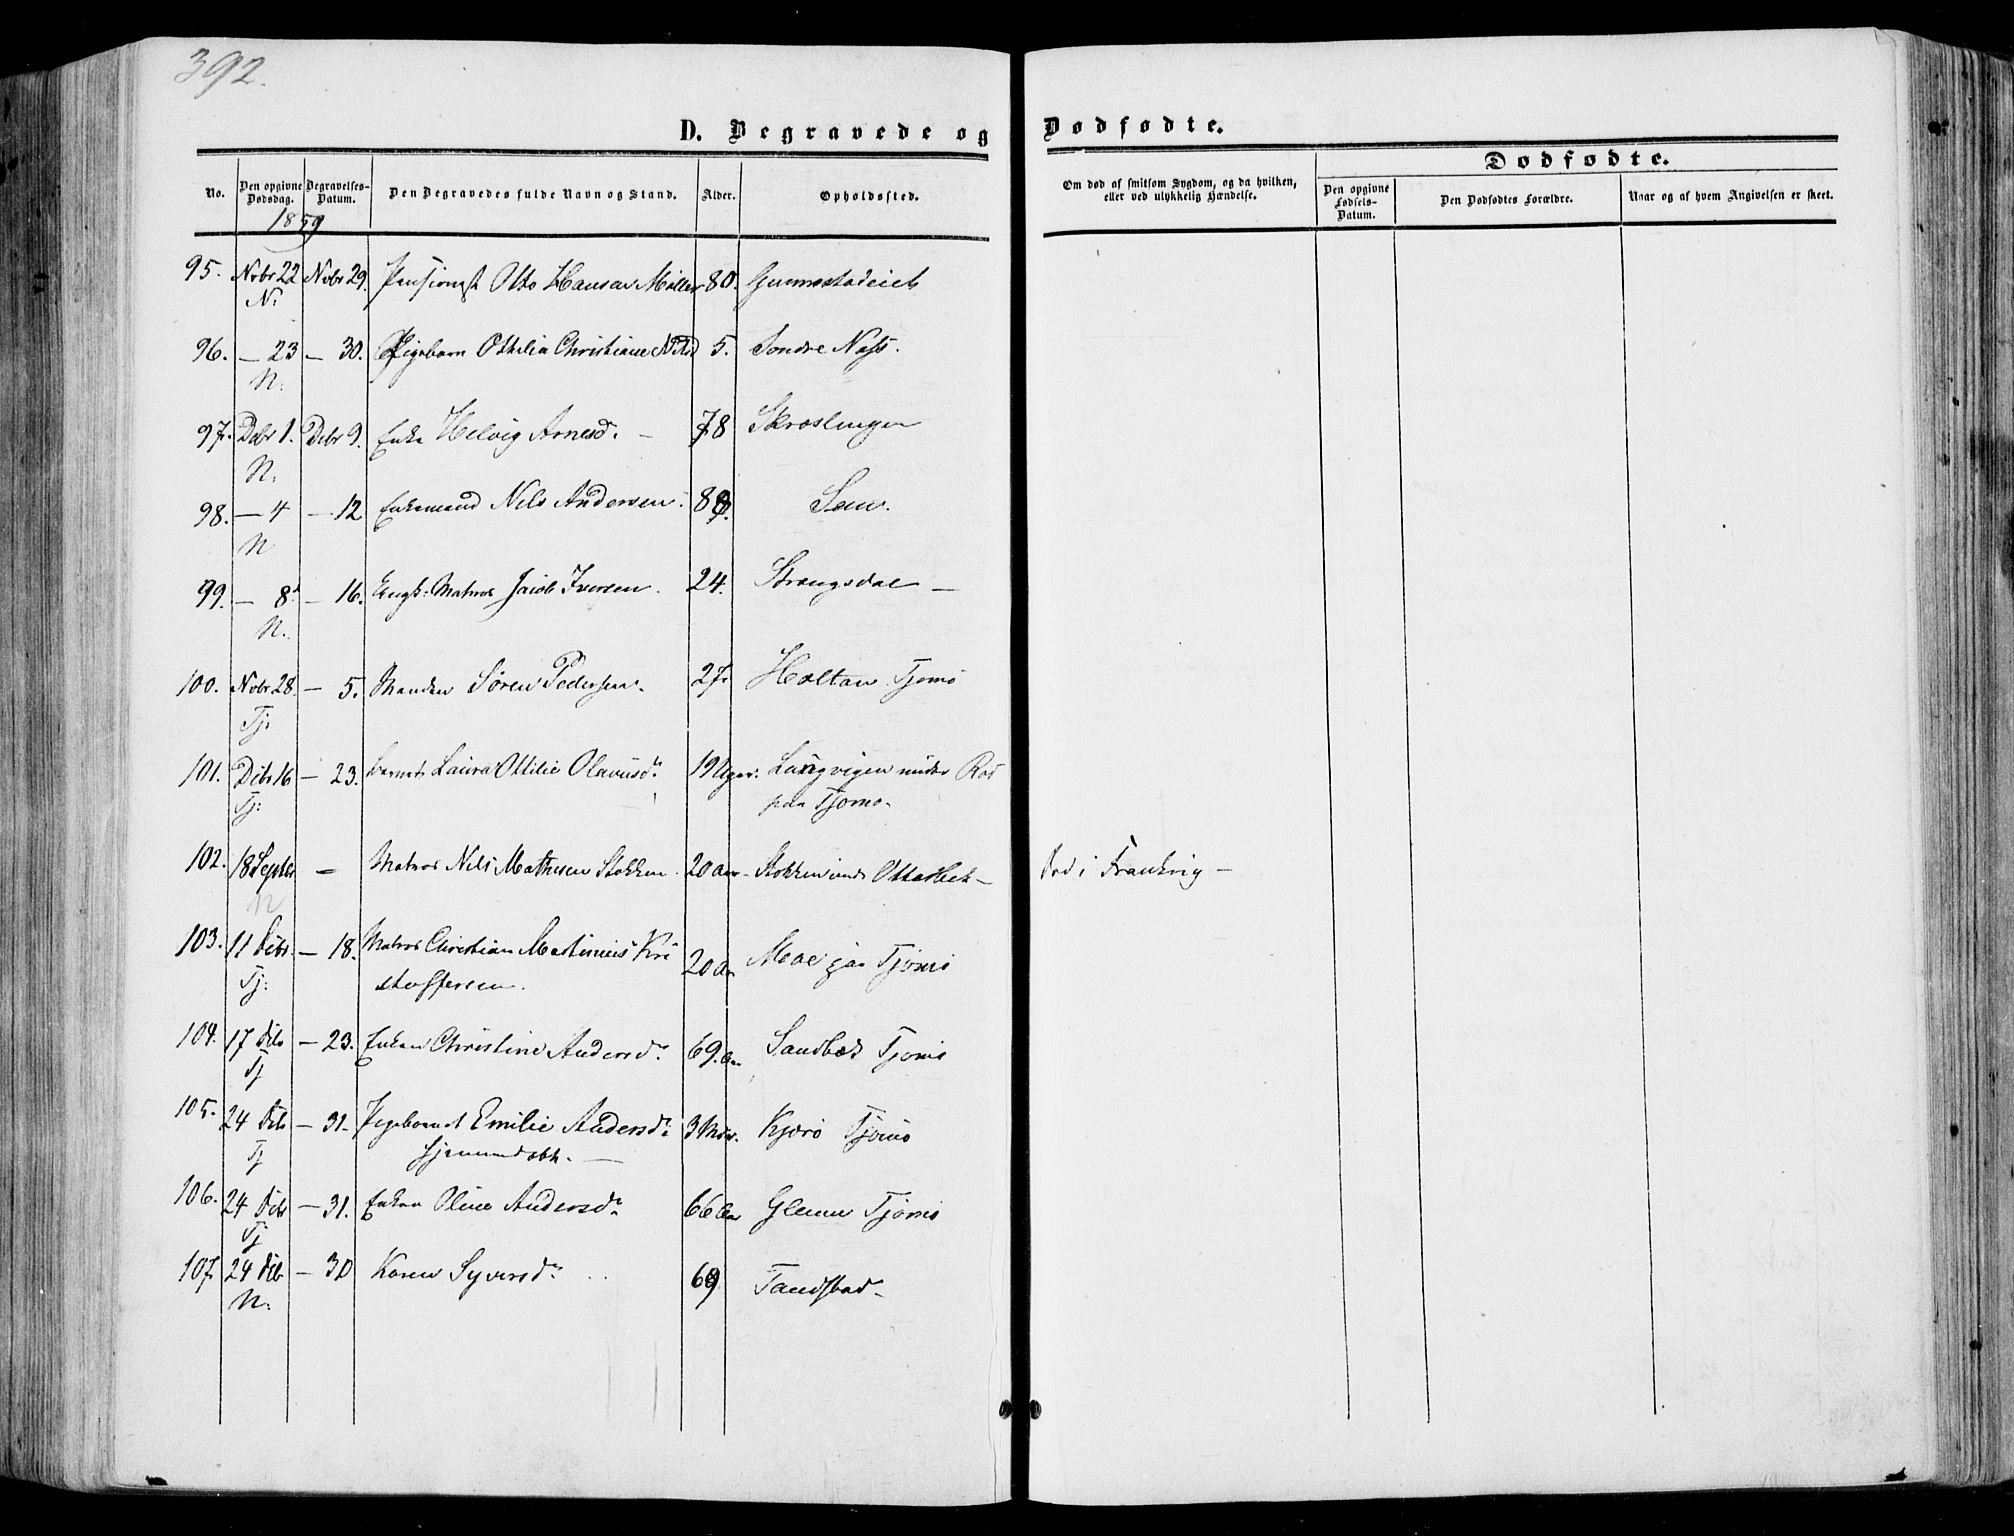 392.
D. Begravede og Dødfødte.
Dødfødte.
No.
Den opgivne Dødsdag.
Begravelses-Datum.
Den Begravedes fulde Navn og Stand.
Alder.
Opholdssted.
Om død af smitsom Sygdom, og da hvilken, eller ved ulykkelig Hændelse.
Den opgivne Fødsels-Datum.
Den Dødfødtes Forældre.
Naar og af hvem Angivelsen er skeet.
1859
95. Nvbr 22 Nvbr 29. Otto Hansen Møller 80.
N.
96. — 23 — 30. Pigebarn Othilia Christiane 5. Søndre Næss.
N.
97. Debr 1. Debr 9. Enke Helvig Arnesd. — 78
N.
98. — 4 — 12 Enkemand Nils Andersen. Sem.
N
99. — 8 — 16. Matros Jacob Iversen. 24.
N.
100. Nvbr 28 — 5. Manden Søren Pedersen. 27. Holtan Tjømø
Tj.
101. Debr 16 — 23. Barnet Laura Ottilie Olausd. 19 Uger. Langvigen under Rød
Tj: paa Tjømø.
102. 18 Septbr — Matros Nils Mathisen Stokken. 20 Aar — Stokken
N
død i Frankrig —
103. 11 Debr — 18. Matros Christian Martinius Kri
Tj: stoffersen. 20 Aar Moe paa Tjømø
104. 17 Debr — 23. Enken Christine Andersd. 69. Aar Sandbæk Tjømø
Tj
105. 24 Debr — 31. Pigebarnet Emilie Andersd. Kjærø Tjømø
Tj
106. 24 Debr — 31. Enken Oline Andersd. 66 Aar Glenne Tjømø
Tj
107. 24 Debr — 30 Karen Syversd. 69
N.